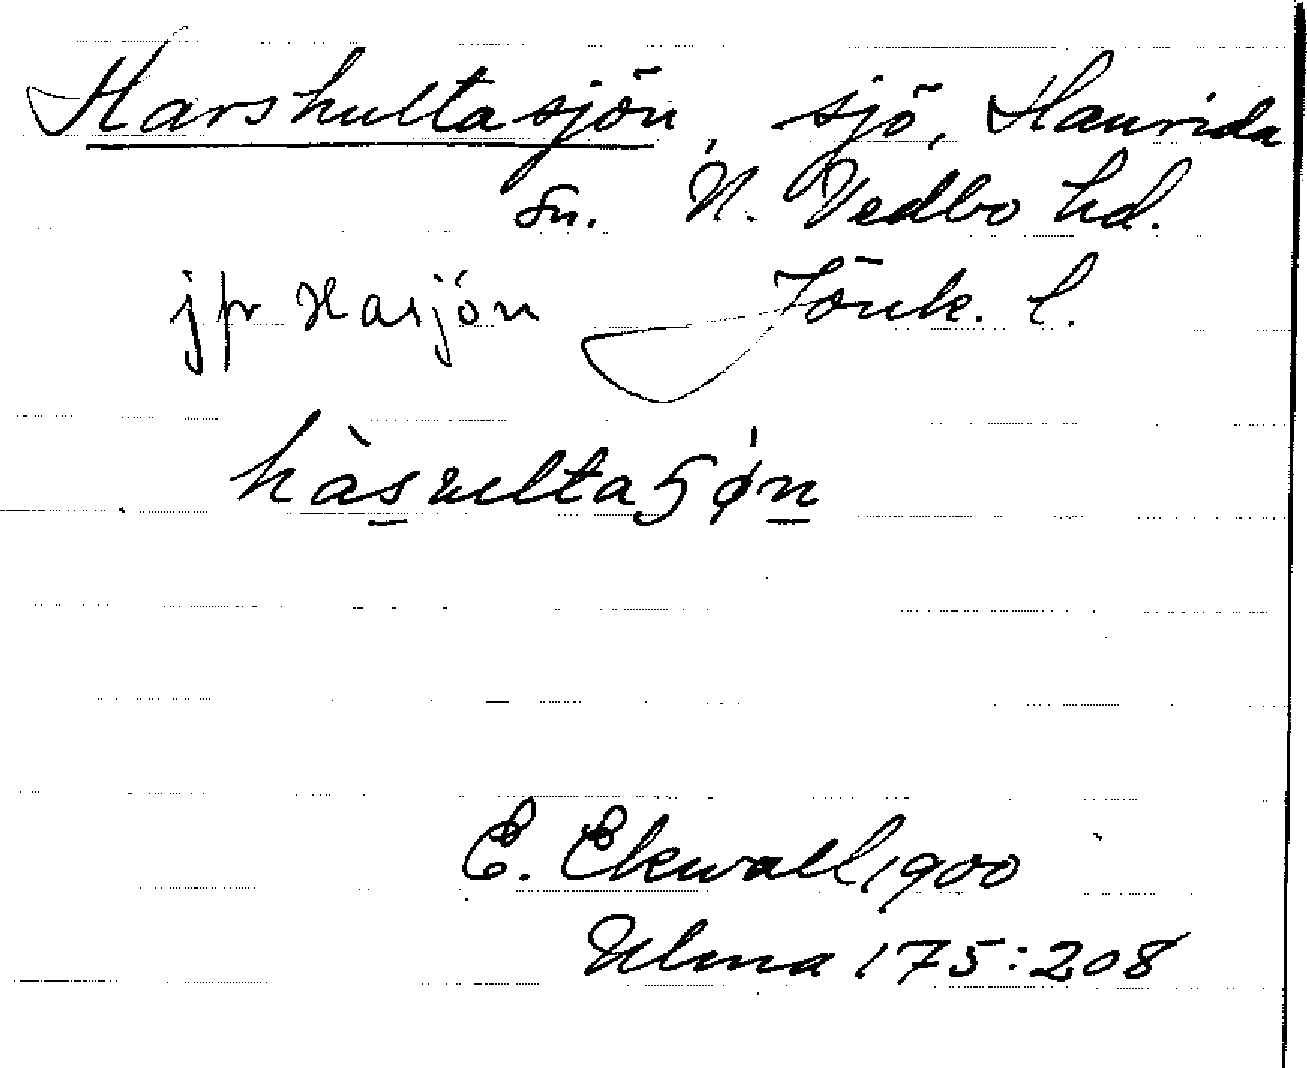 Harshultasjön, sjö, Haurida
sn. N. Vedbo hd.
jfr Hasjön Jönk. l.
hàsʉlta5ǿn
E. Ekwall 1900
Ulma 175:208